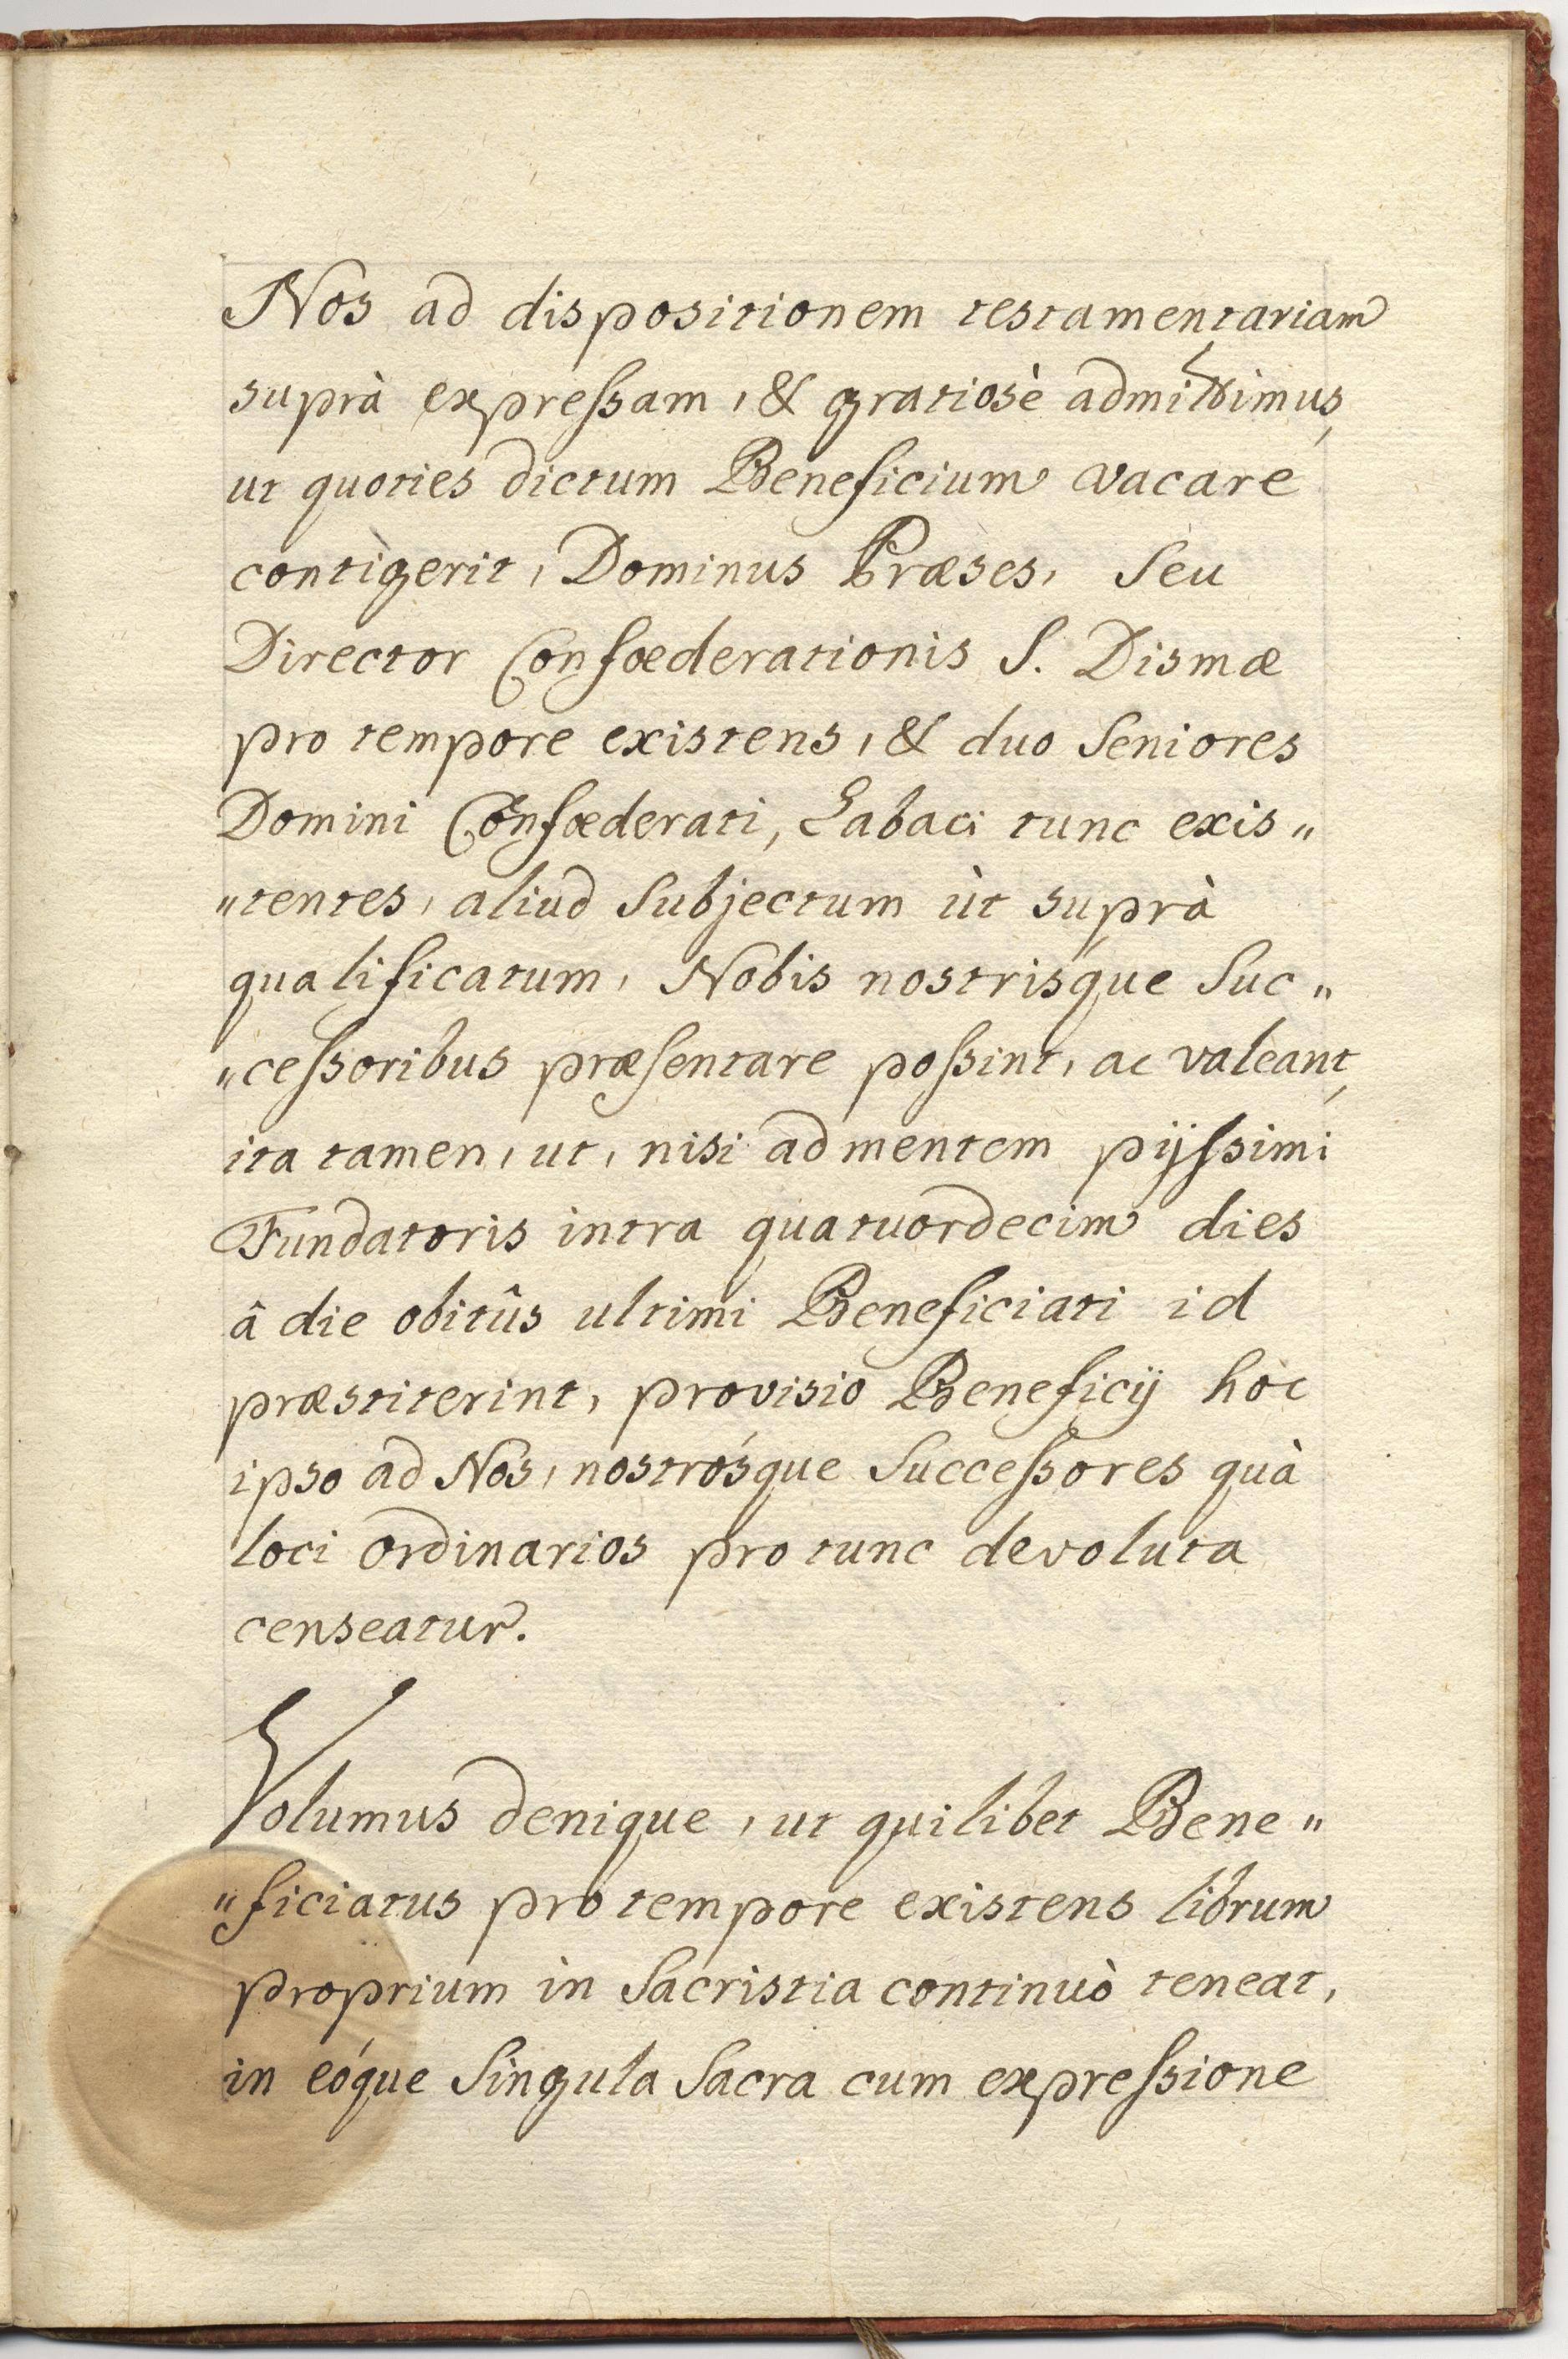 Nos ad dispositionem testamentariam
suprà expreſsam, & gratiosè admittimus,
ut quoties dictum Beneficium vacare
contigerit, Dominus Præses, Seu
Director Confœderationis S. Dismæ
pro tempore existens, & duo Seniores
Domini Confœderati, Labaci tunc exis„
„tentes, aliud Subjectum ùt suprà
qualificatum, Nobis nostrisque Suc„
„ceſsoribus præſentare poſsint, ac valeant,
ita tamen, ut, nisi ad mentem pijſsimi
Fundatoris intra quatuordecim dies
â die obitûs ultimi Beneficiati id
præstiterint, provisio Beneficij hòc
ipso ad Nos, nostrósque Succeſsores quà
loci ordinarios pro tunc devoluta
censeatur.
Volumus denique, ut quilibet Bene„
„ficiatus pro tempore existens librum
proprium in Sacristia continuò teneat,
in eóque Singula Sacra cum expreſsione